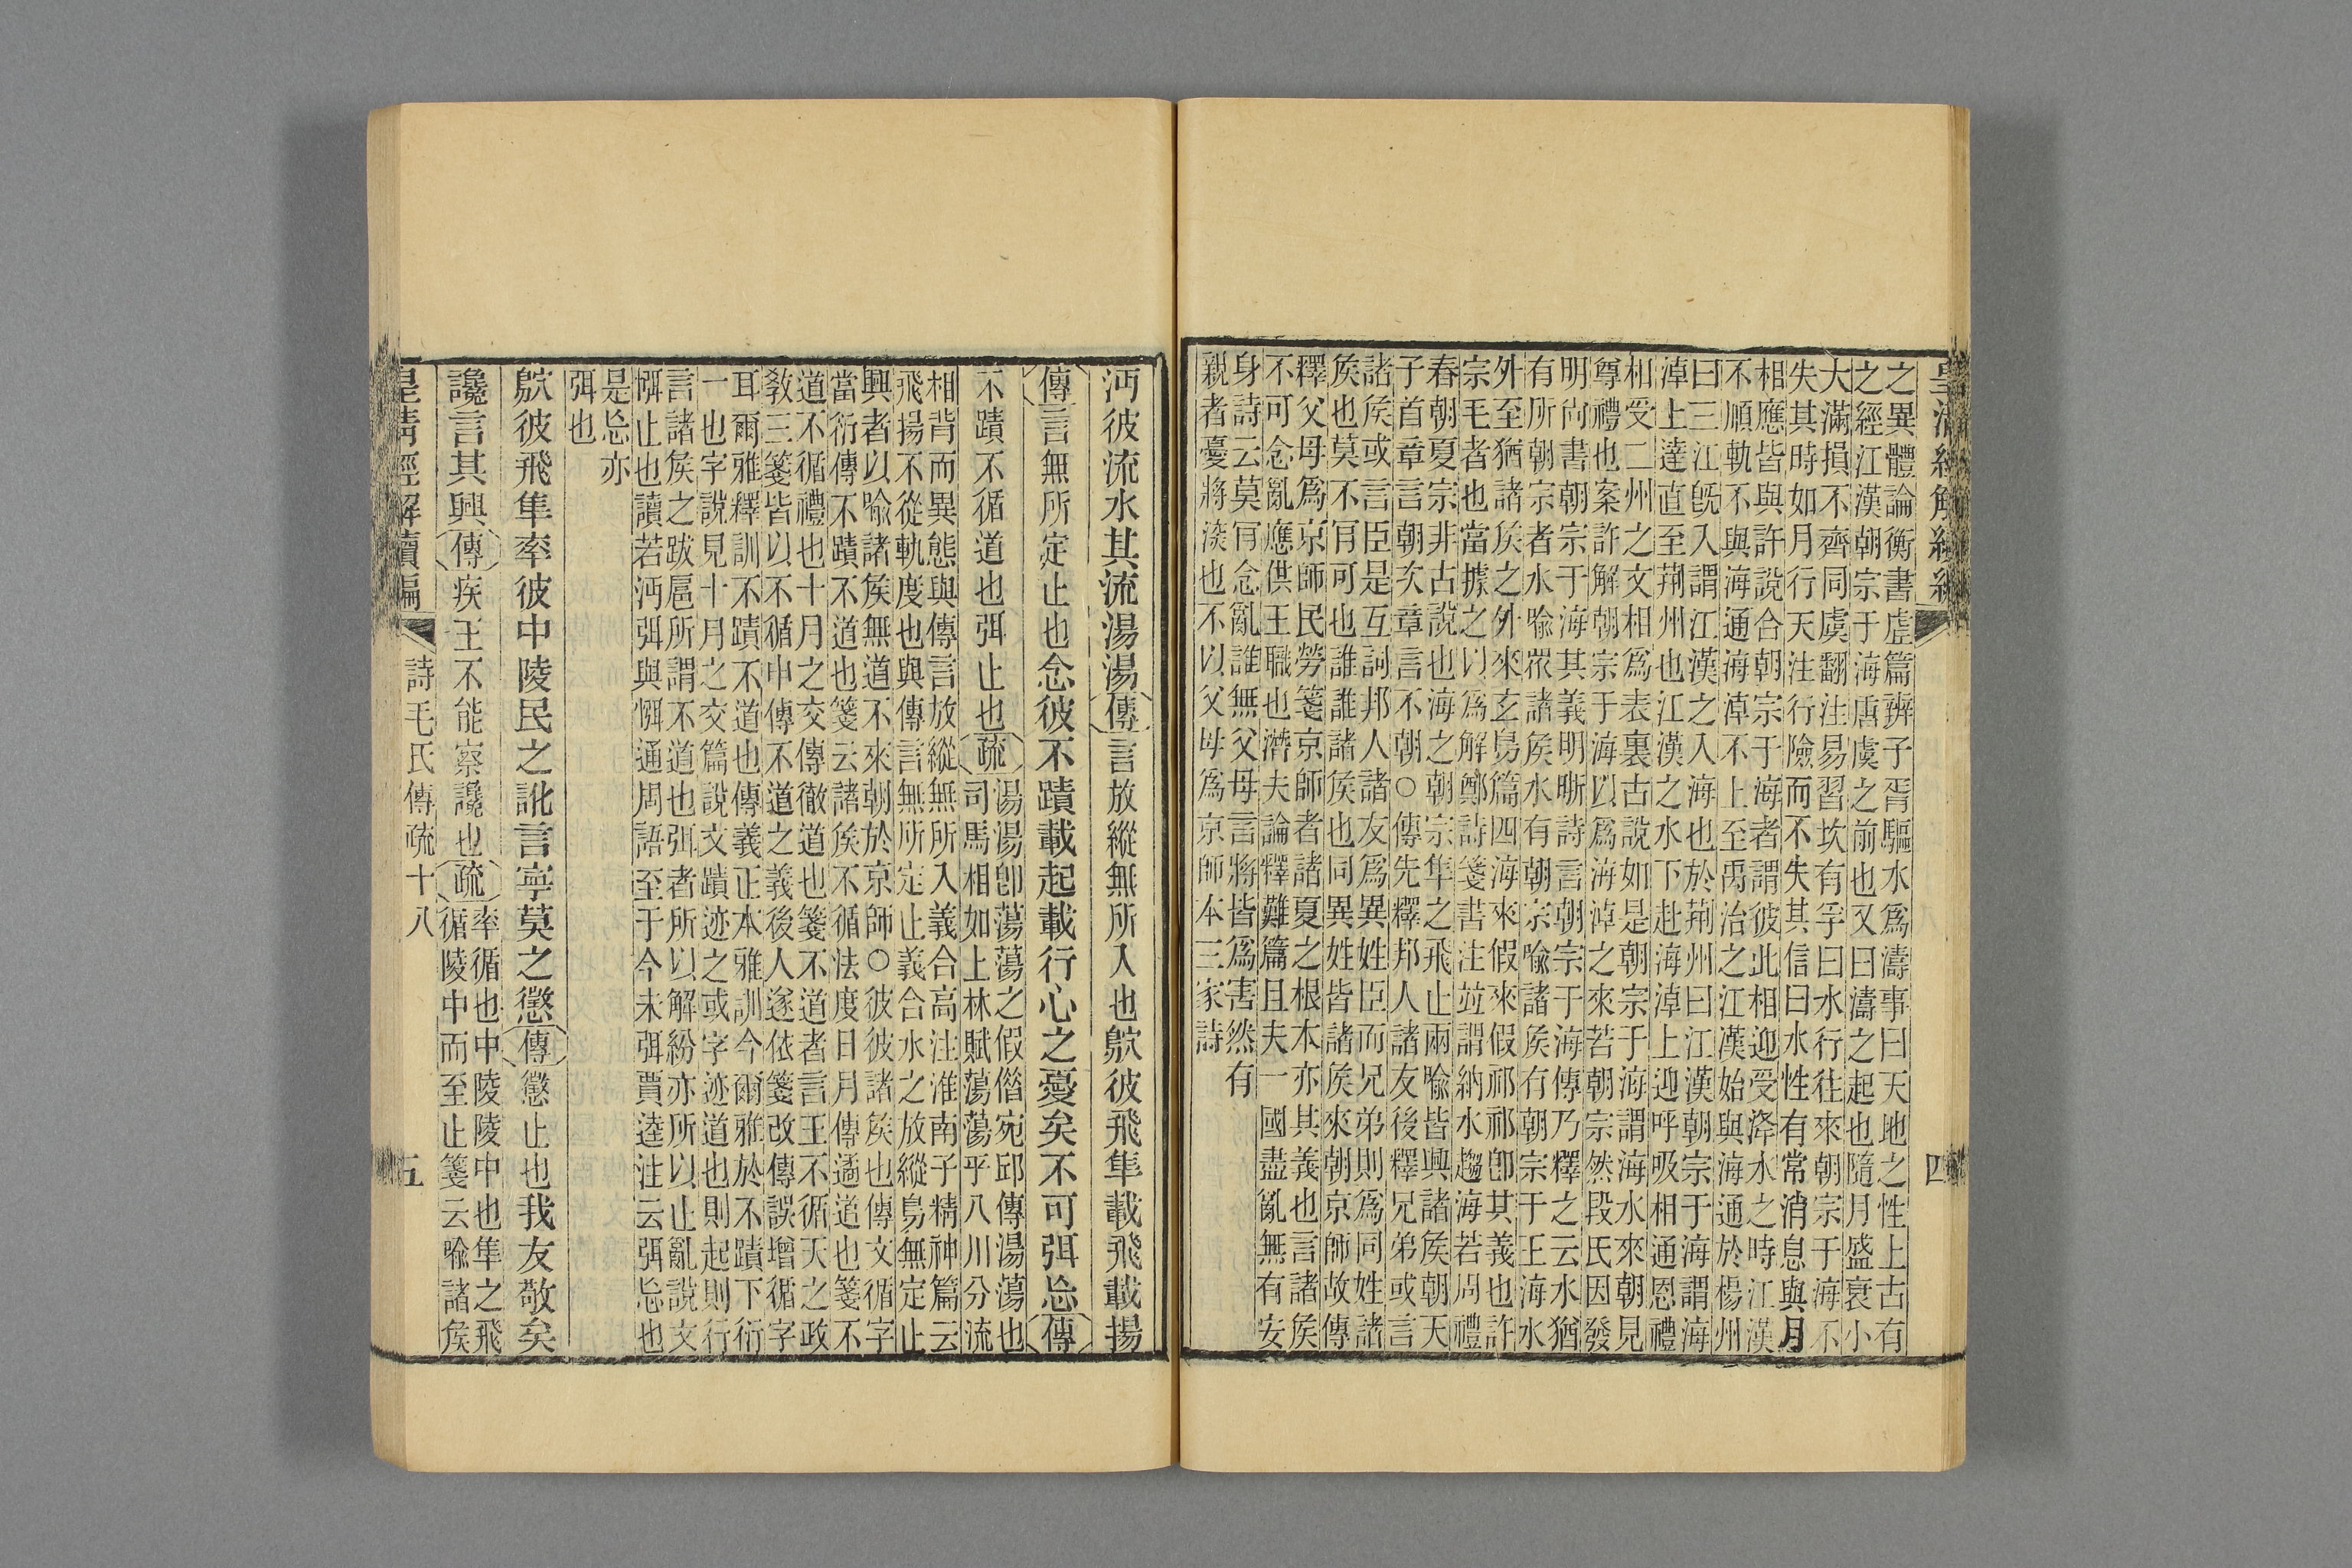 皇清經解續編
四
之異體論衡書虛篇辨子胥驅水爲濤事曰天地之性上古有
之經江漢朝宗于海唐虞之前也又曰濤之起也隨月盛衰小
大滿損不齊同虞翻注易習坎有孚曰水行往來朝宗于海不
失其時如月行天注行險而不失其信曰水性有常消息與月
相應皆與許說合朝宗于海者謂彼此相迎受洚水之時江漢
不順軌不與海通海淖不上至禹治之江漢始與海通於楊州
曰三江旣入謂江漢之入海也於荆州曰江漢朝宗于海謂海
淖上達直至荆州也江漢之水下赴海淖上迎呼吸相通恩禮
相受二州之文相爲表裏古說如是朝宗于海謂海水來朝見
尊禮也案許解朝宗于海以爲海淖之來若朝宗然段氏因發
明尙書朝宗于海其義明晰詩言朝宗于海傳乃釋之云水猶
有所朝宗者水喻眾諸矦水有朝宗喻諸矦有朝宗于王海水
外至猶諸矦之外來玄鳥篇四海來假來假祁祁卽其義也許
宗毛者也當據之以爲解鄭詩箋書注竝謂納水趨海若周禮
春朝夏宗非古說也海之朝宗隼之飛止兩喻皆興諸矦朝天
子首章言朝次章言不朝○傳先釋邦人諸友後釋兄弟或言
諸矦或言臣是互訶邦人諸友爲異姓臣而兄弟則爲同姓諸
矦也莫不肎可也誰誰諸矦也同異姓皆諸矦來朝京師故傳
釋父母爲京師民勞箋京師者諸夏之根本亦其義也言諸矦
不可念亂應供王職也潛夫論釋難篇且夫一國盡亂無有安
身詩云莫肎念亂誰無父母言將皆爲害然有
親者憂將深也不以父母爲京師本三家詩
沔彼流水其流湯湯傳言放縱無所入也鴥彼飛隼載飛載揚
傳言無所定止也念彼不蹟載起載行心之憂矣不可弭忘傳
不蹟不循道也弭止也疏
湯湯卽蕩蕩之假借宛邱傳湯蕩也
司馬相如上林賦蕩蕩乎八川分流
相背而異態與傳言放縱無所入義合高注淮南子精神篇云
飛揚不從軌度也與傳言無所定止義合水之放縱鳥無定止
興者以喻諸矦無道不來朝於京師○彼彼諸矦也傳文循字
當衍傳不蹟不道也箋云諸矦不循法度日月傳遹道也箋不
道不循禮也十月之交傳徹道也箋不道者言王不循天之政
敎三箋皆以不循申傳不道之義後人遂依箋改傳誤增循字
耳爾雅釋訓不蹟不道也傳義正本雅訓今爾雅於不蹟下衍
一也字說見十月之交篇說文蹟迹之或字迹道也則起則行
言諸矦之跋扈所謂不道也弭者所以解紛亦所以止亂說文
止也讀若沔弭與通周語至于今未弭賈逵注云弭忘也
是忘亦
弭也
鴥彼飛隼率彼中陵民之訛言寧莫之懲傳懲止也我友敬矣
讒言其興傳疾王不能察讒也疏
率循也中陵陵中也隼之飛
循陵中而至止箋云喻諸矦
皇清經解續編
詩毛氏傳疏十八
五